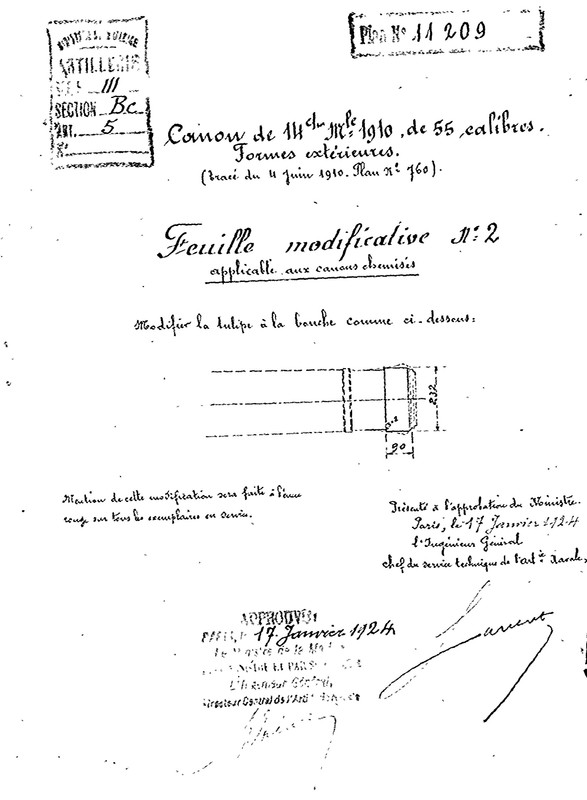 ARTILLERIE
III
SECTION B.c
ART. 5
Plan N° 11 209
Canon de 14 c/m Mle 1910, de 55 calibres.
Formes extérieures.
(Tracé du 4 Juin 1910. Plan N° 760).
Feuille modificative N° 2
applicable aux canons chemisés
Modifier la tulipe à la bouche comme ci-dessous:
232
90
Mention de cette modification sera faite à l'encre
rouge sur tous les exemplaires en service.
Présenté à l'approbation du Ministre.
Paris, le 17 Janvier 1924
l'Ingénieur Général
Chef du service technique de l'Artie Navale,
APPROUVÉ
PARIS, 17 Janvier 1924
Le Ministre de la
L'Ingénieur Général,
Directeur Central de l'Artie